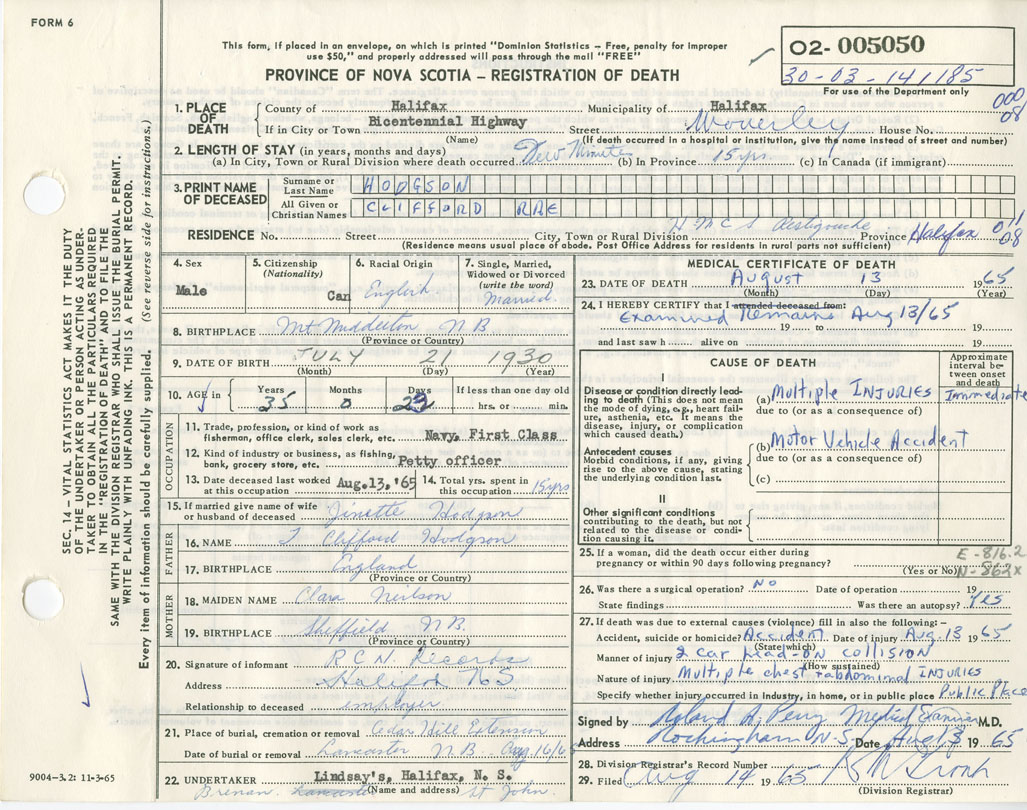 FORM 6
This form, if placed in an envelope, on which is printed "Dominion Statistics – Free, penalty for improper
use $50," and properly addressed will pass through the mail "FREE"
O2- 005050
30-03-141185
For use of the Department only
PROVINCE OF NOVA SCOTIA – REGISTRATION OF DEATH
000
08
1. PLACE OF DEATH County of Halifax Municipality of Halifax
If in City or Town Bicentennial Highway Street Waverley House No.
(Name) (If death occurred in a hospital or institution, give the name instead of street and number)
2. LENGTH OF STAY (in years, months and days)
(a) In City, Town or Rural Division where death occurred Few Minutes (b) In Province 15 yrs. (c) In Canada (if immigrant)
3. PRINT NAME OF DECEASED Surname or Last Name HODGSON
All Given or Christian Names CLIFFORD RAE
RESIDENCE No. Street City, Town or Rural Division H M C S Province Halifax 08
(Residence means usual place of abode. Post Office Address for residents in rural parts not sufficient)
4. Sex Male
5. Citizenship (Nationality) Can
6. Racial Origin English
7. Single, Married, Widowed or Divorced (write the word) Married.
8. BIRTHPLACE Mt Middleton N B
(Province or Country)
9. DATE OF BIRTH JULY 21 1930
(Month) (Day) (Year)
10. AGE in Years 35 Months 0 Days If less than one day old hrs. or min.
OCCUPATION
11. Trade, profession, or kind of work as fisherman, office clerk, sales clerk, etc. Navy, First Class
12. Kind of industry or business, as fishing, bank, grocery store, etc. Petty officer
13. Date deceased last worked at this occupation Aug.13,'65
14. Total yrs. spent in this occupation 15yrs
15. If married give name of wife or husband of deceased Ginette Hodgson
FATHER
16. NAME Clifford Hodgson
17. BIRTHPLACE England
(Province or Country)
MOTHER
18. MAIDEN NAME Clara Neilson
19. BIRTHPLACE Sheffield N.B.
(Province or Country)
20. Signature of informant R.C.N. Records
Address Halifax N S
Relationship to deceased employer
21. Place of burial, cremation or removal Cedar Hill Extension
Date of burial or removal Lancaster N B Aug 16/65
22. UNDERTAKER Lindsay's, Halifax, N. S.
(Name and address)
Brenan St John.
MEDICAL CERTIFICATE OF DEATH
23. DATE OF DEATH August 13 1965
(Month) (Day) (Year)
24. I HEREBY CERTIFY that I attended deceased from:
Examined Remains Aug 13/65
19 to 19
and last saw h alive on 19
CAUSE OF DEATH
Approximate interval between onset and death
I
Disease or condition directly leading to death (This does not mean the mode of dying, e.g., heart failure, asthenia, etc. It means the disease, injury, or complication which caused death.)
(a) Multiple INJURIES Immediate
due to (or as a consequence of)
Antecedent causes
Morbid conditions, if any, giving rise to the above cause, stating the underlying condition last.
(b) Motor Vehicle Accident
due to (or as a consequence of)
(c)
II
Other significant conditions
contributing to the death, but not related to the disease or condition causing it.
25. If a woman, did the death occur either during
pregnancy or within 90 days following pregnancy?
(Yes or No)
E-816.2
N-862x
26. Was there a surgical operation? No Date of operation 19
State findings Was there an autopsy? Yes
27. If death was due to external causes (violence) fill in also the following:–
Accident, suicide or homicide? Accident Date of injury Aug. 13 1965
(State which)
Manner of injury 2 car head-on collision
(How sustained)
Nature of injury Multiple chest + abdominal INJURIES
Specify whether injury occurred in industry, in home, or in public place Public Place
Signed by Roland A Perry Medical Examiner M.D.
Address Rockingham N.S. Date Aug 13 1965
28. Division Registrar's Record Number
29. Filed Aug 14 1965
(Division Registrar)
SEC. 14 – VITAL STATISTICS ACT MAKES IT THE DUTY
OF THE UNDERTAKER OR PERSON ACTING AS UNDER-
TAKER TO OBTAIN ALL THE PARTICULARS REQUIRED
IN THE "REGISTRATION OF DEATH" AND TO FILE THE
SAME WITH THE DIVISION REGISTRAR WHO SHALL ISSUE THE BURIAL PERMIT.
WRITE PLAINLY WITH UNFADING INK. THIS IS A PERMANENT RECORD.
Every item of information should be carefully supplied. (See reverse side for instructions.)
9004-3.2: 11-3-65